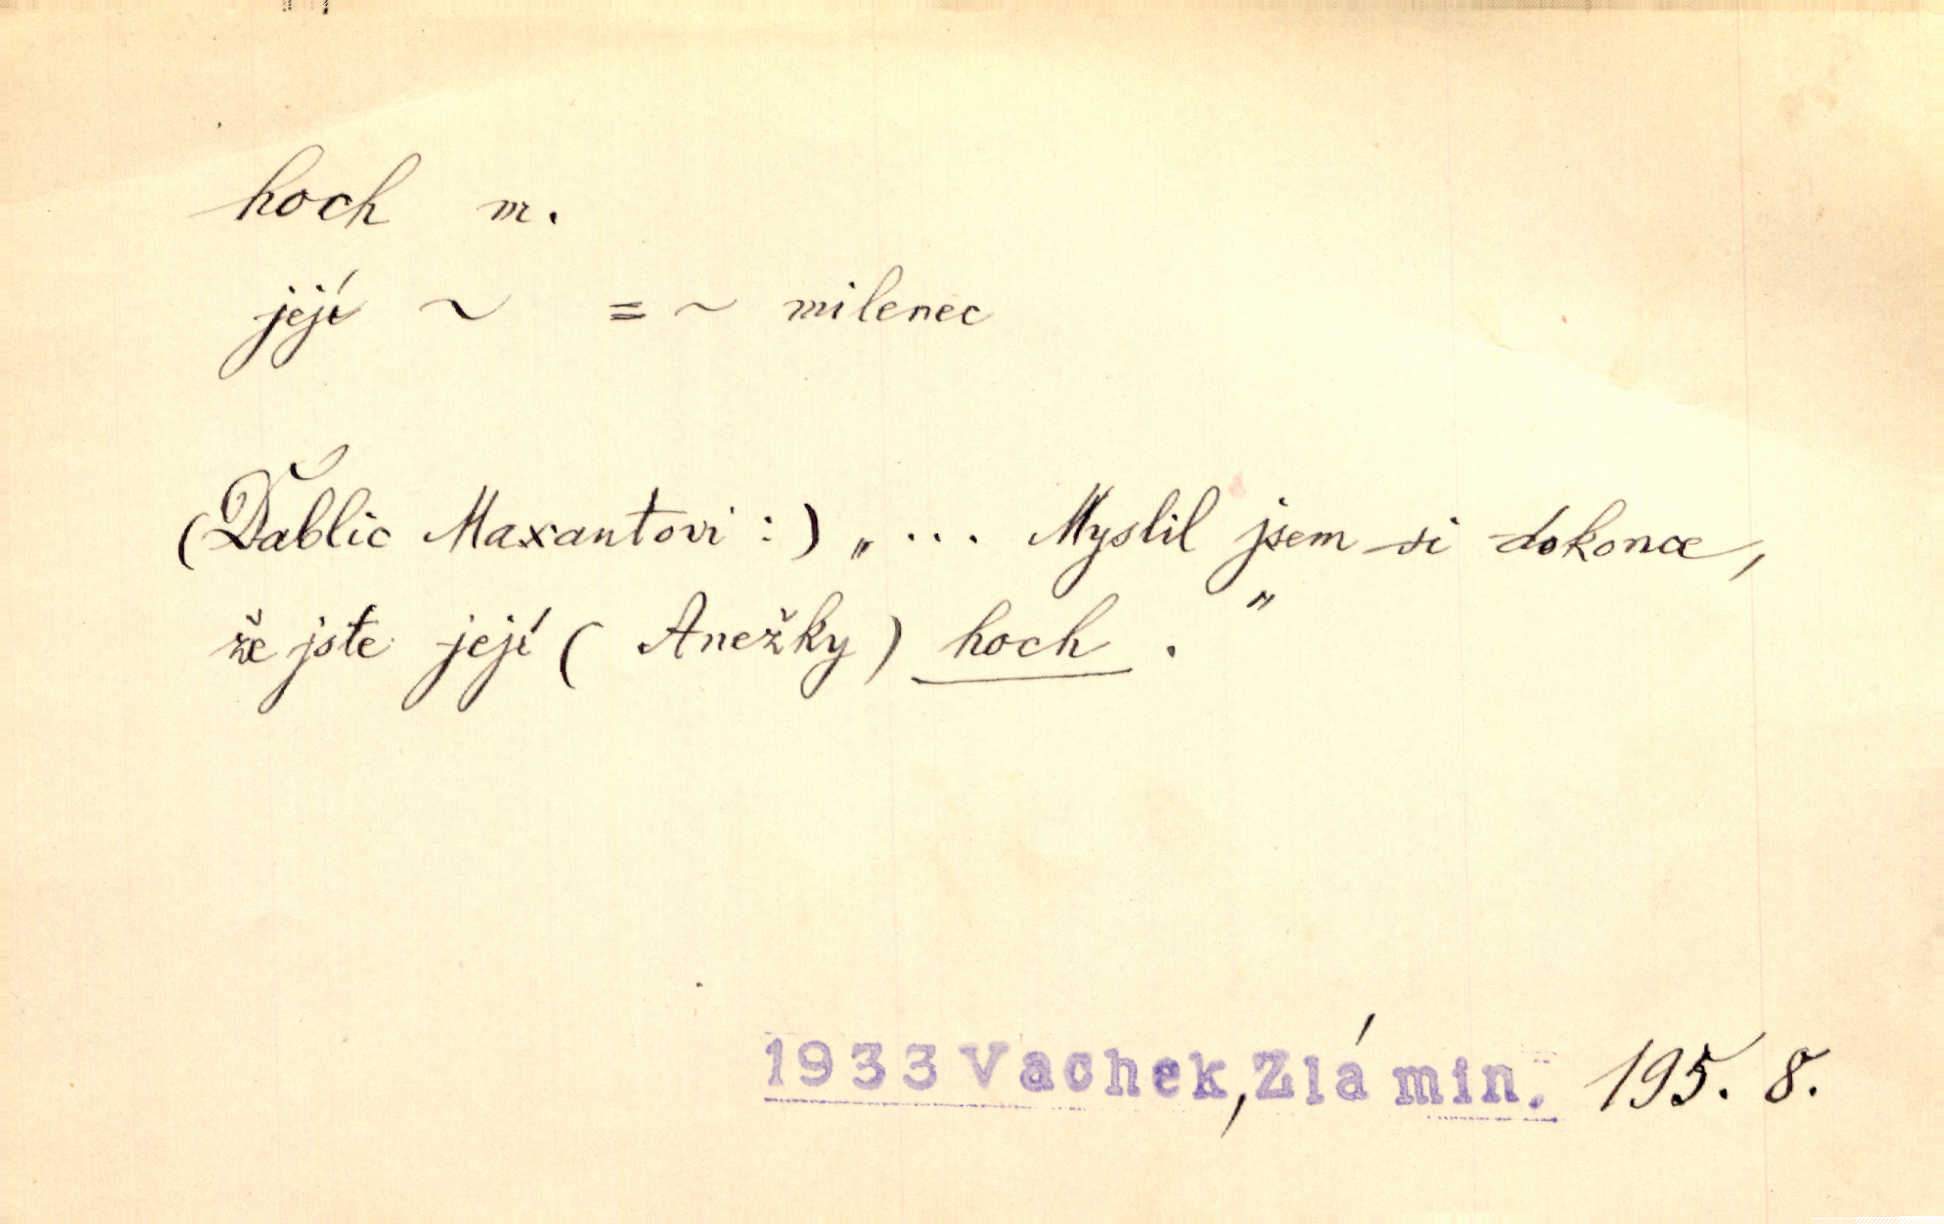 hoch m.
její ~ = ~ milenec
(Ďablic Maxantovi :) „ ... Myslil jsem si dokonce,
že jste její ( Anežky ) hoch . "
1933 Vachek, Zlá min. 195. 8.